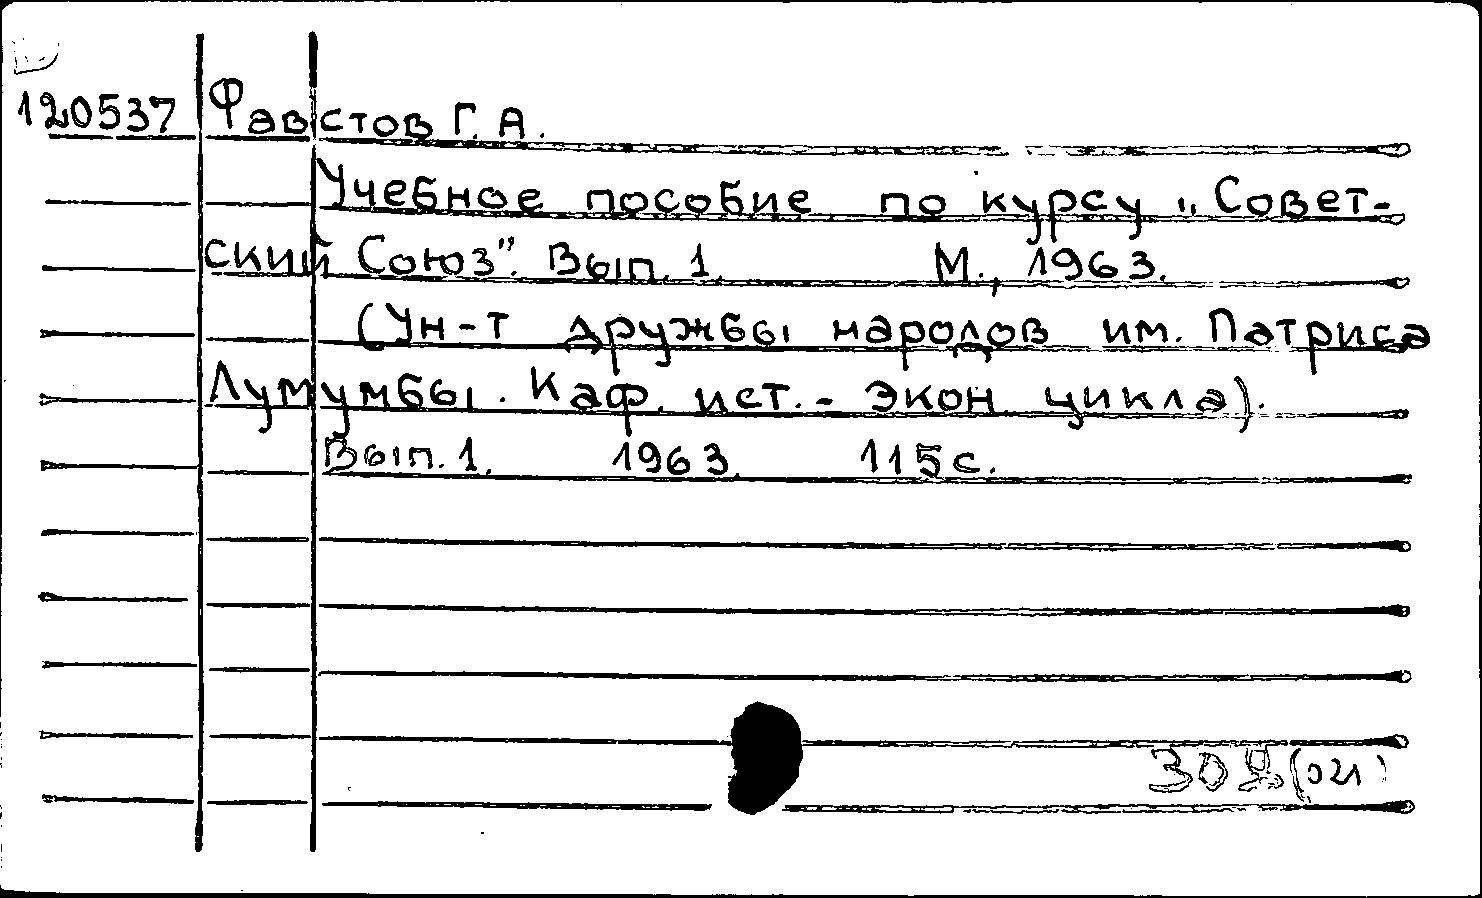 120537 Фавстов Г. А.
Учебное пособие по курсу „Совет-
ский Союз”. Вып. 1. М., 1963.
(Ун-т дружбы народов им. Патриса
Лумумбы. Каф. ист.- экон. цикла).
Вып. 1. 1963. 115 с.
(021)